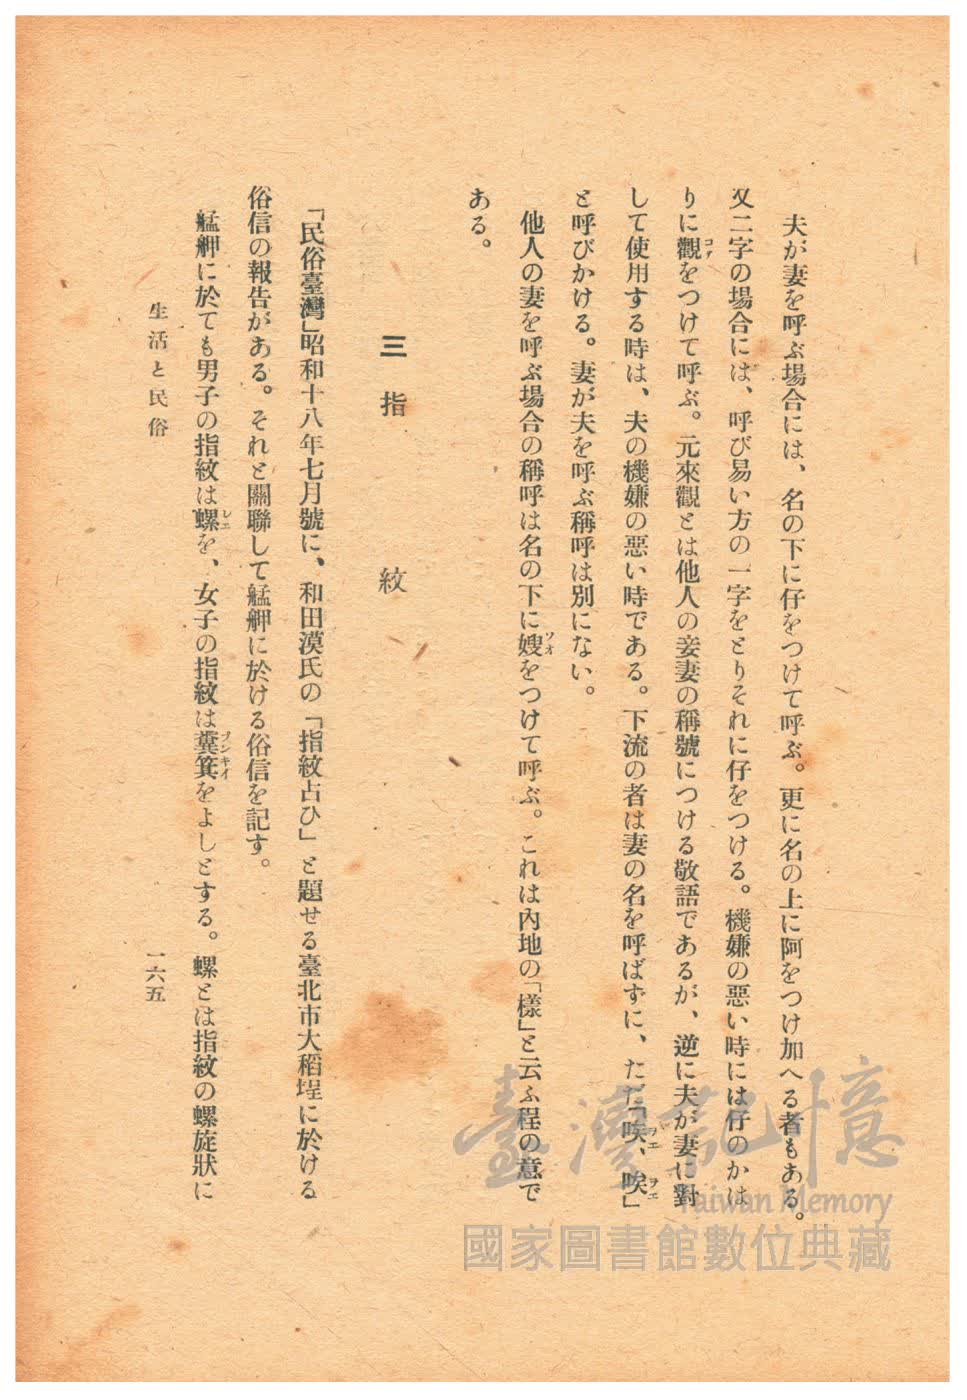 夫が妻を呼ぶ場合には、名の下に仔をつけて呼ぶ。更に名の上に阿をつけ加へる者もある。
又二字の場合には、呼び易い方の一字をとりそれに仔をつける。機嫌の惡い時には仔のかは
りに觀をつけて呼ぶ。元來觀とは他人の妾妻の稱號につける敬語であるが、逆に夫が妻に對
コア
して使用する時は、夫の機嫌の惡い時である。下流の者は妻の名を呼ばずに、ただ「唉、唉」
ヲエ ヲエ
と呼びかける。妻が夫を呼ぶ稱呼は別にない。
他人の妻を呼ぶ場合の稱呼は名の下に嫂をつけて呼ぶ。これは內地の「樣」と云ふ程の意で
ソオ
ある。
三 指紋
「民俗臺灣」昭和十八年七月號に、和田漠氏の「指紋占ひ」と題せる臺北市大稻埕に於ける
俗信の報告がある。それと關聯して艋舺に於ける俗信を記す。
艋舺に於ても男子の指紋は螺を、女子の指紋は糞箕をよしとする。螺とは指紋の螺旋狀に
レエ プンキイ
生活と民俗
一六五
臺灣記憶
Taiwan Memory
國家圖書館數位典藏